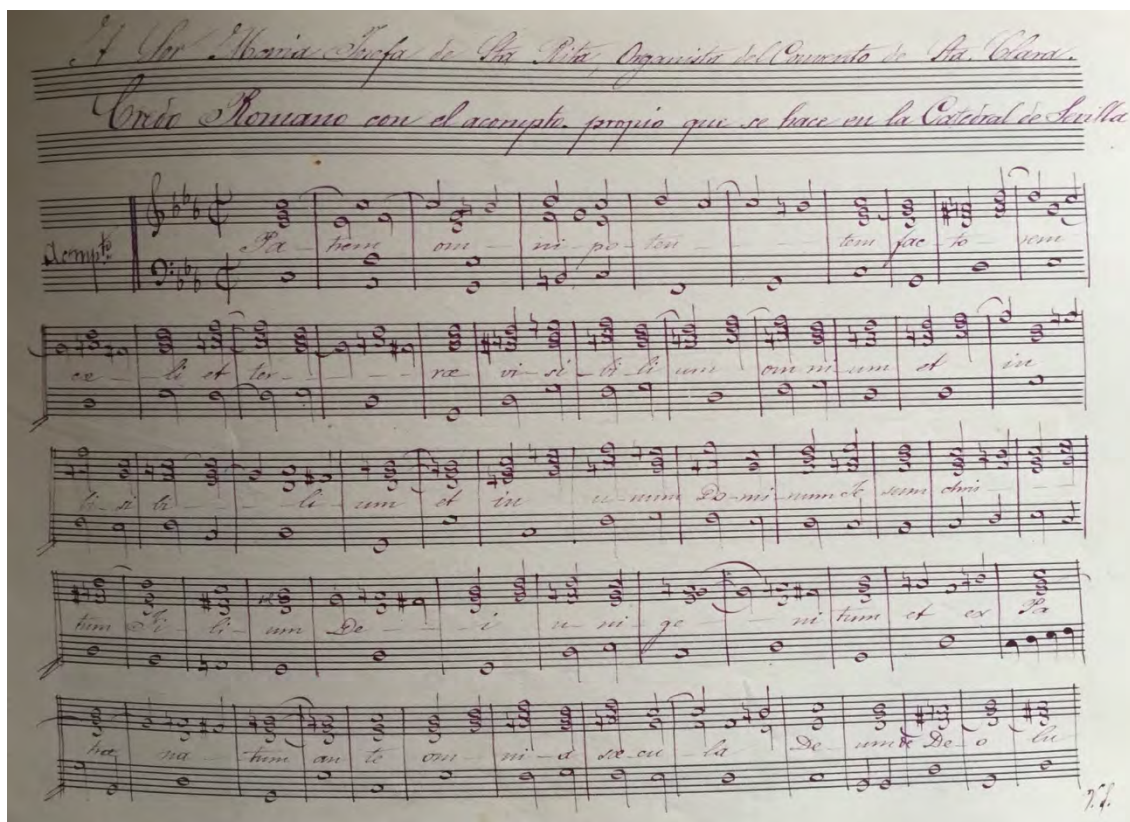 A Sor Maria Josefa de Sta Rita, Organista del Convento de Sta. Clara.
Credo Romano con el acompto. propio que se hace en la Catedral de Sevilla
Acompto
Pa - trem om - ni - po - ten - - - tem fac - to - rem
cæ - li et ter - - - ræ vi - si - bi - li um om ni - um et in
bi - si bi - - - li - um et in u - num Do - mi - num Je sum chri - -
tum Fi - li - um De - - - i u - ni - ge - ni tum et ex Pa
træ na - tum an te om - ni - a sæ - cu - la De - um de De - o lu
V.S.